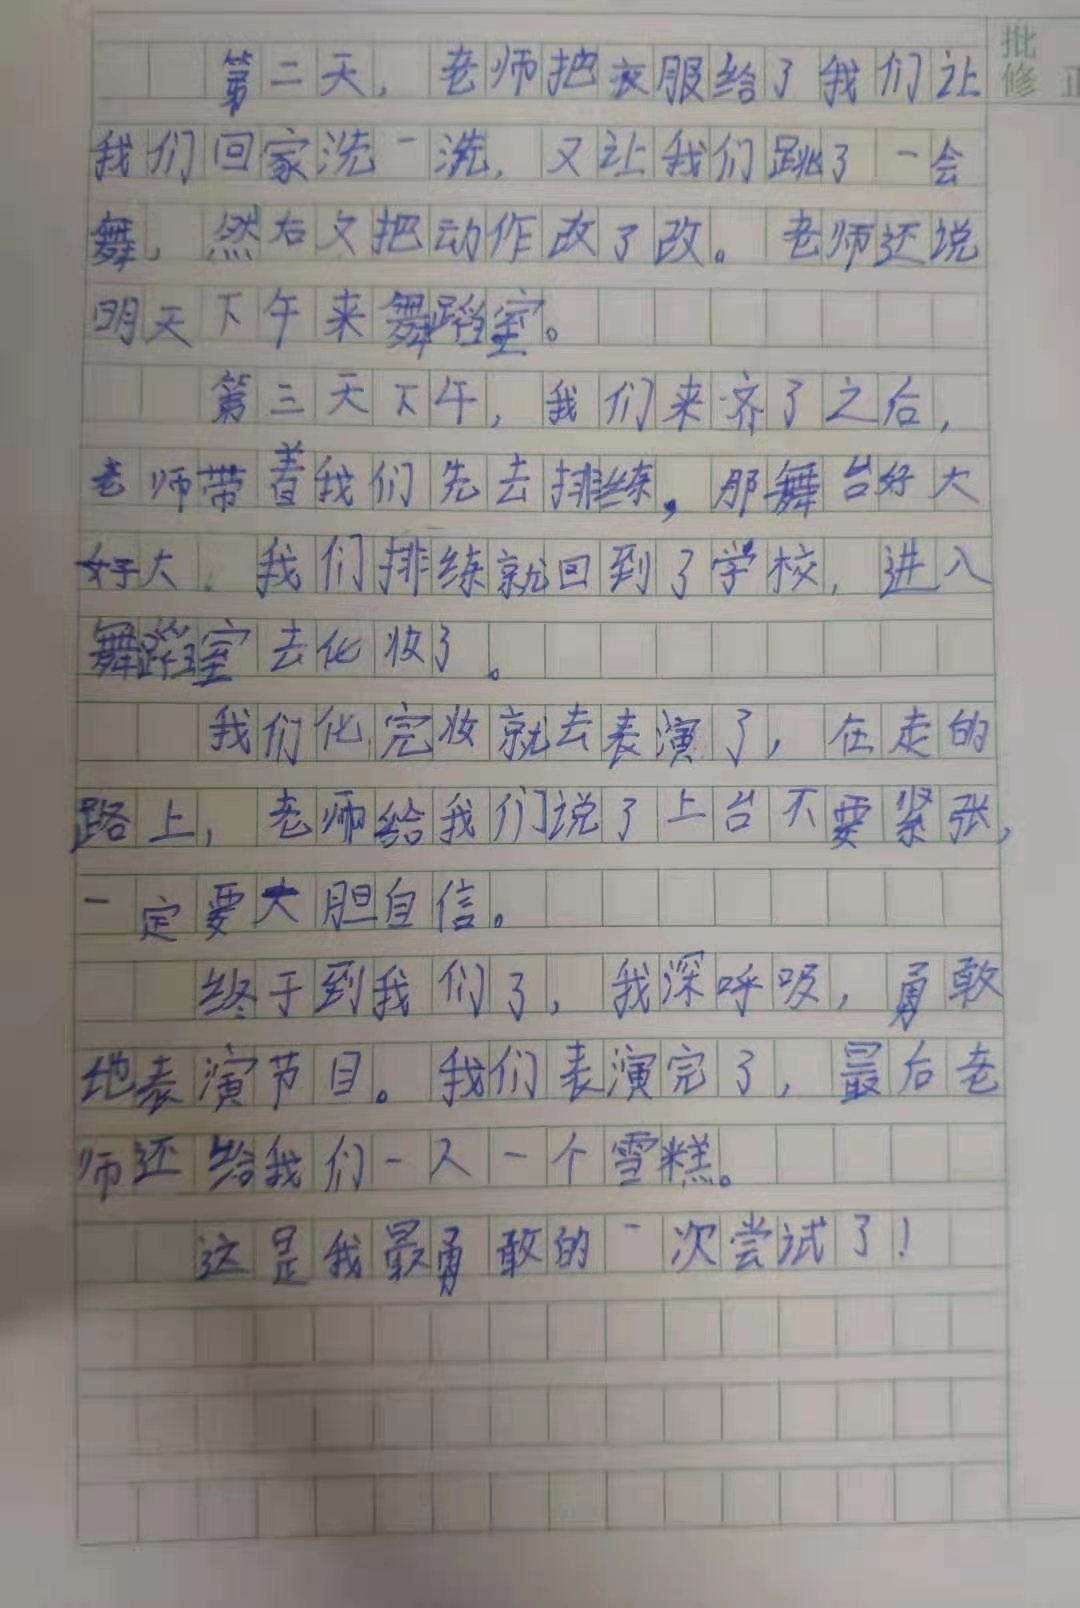 批
修 正
第二天，老师把衣服给了我们让
我们回家洗一洗，又让我们跳了一会
舞，然右又把动作改了改。老师还说
明天下午来舞蹈室。
第三天下午，我们来齐了之后，
老师带着我们先去排练，那舞台好大
好大．我们排练就回到了学校，进入
舞蹈室去化妆了。
我们化完妆就去表演了，在走的
路上，老师给我们说了上台不要紧张，
一定要大胆自信。
终于到我们了，我深呼吸，勇敢
地表演节目。我们表演完了，最后老
师还给我们一人一个雪糕。
这是我最勇敢的一次尝试了！